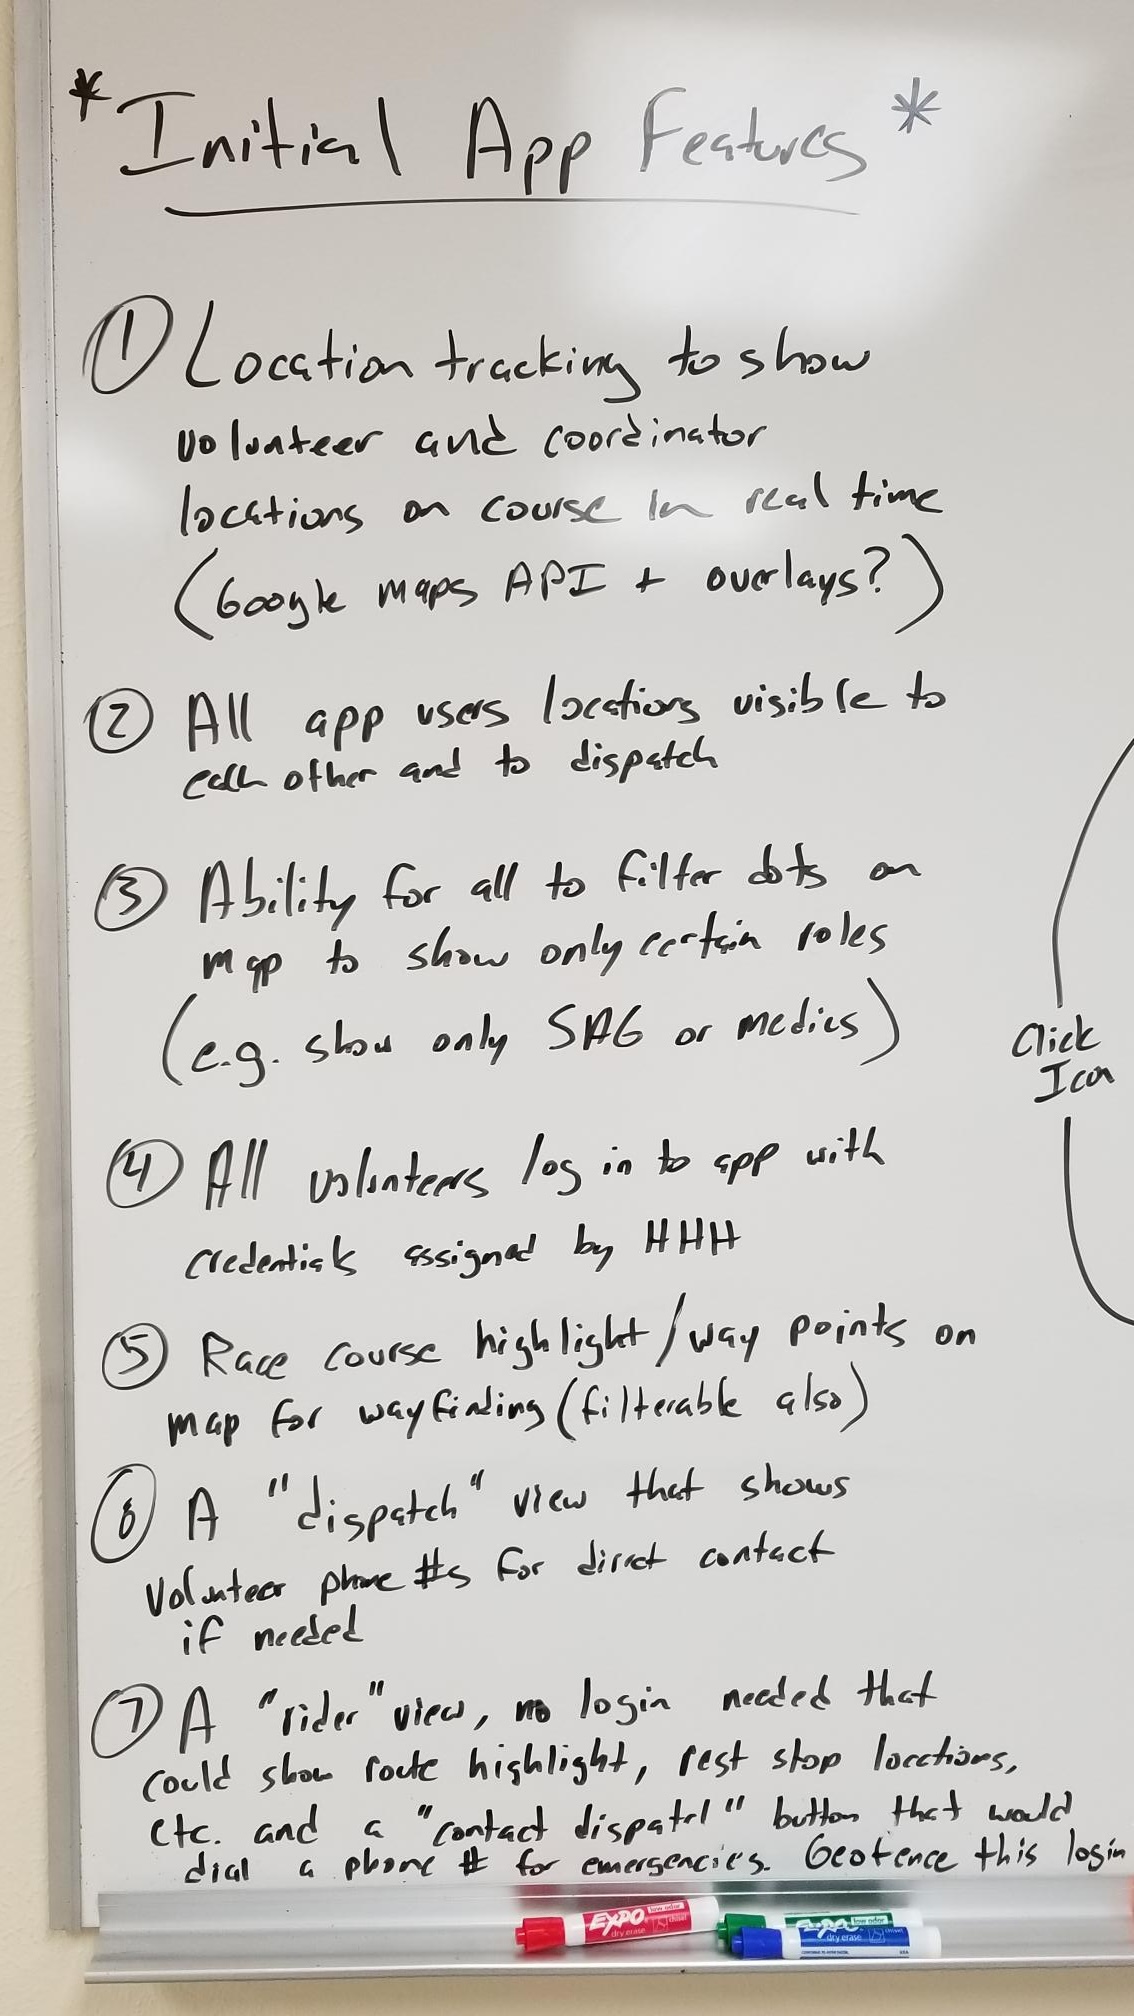 * Initial App Features *
① Location tracking to show
volunteer and coordinator
locations on course in real time
(Google Maps API + overlays?)
② All app users locations visible to
each other and to dispatch
③ Ability for all to filter dots on
map to show only certain roles
(e.g. show only SAG or medics)
④ All volunteers log in to app with
credentials assigned by HHH
⑤ Race course highlight/way points on
map for wayfinding (filterable also)
⑥ A "dispatch" view that shows
volunteer phone #s for direct contact
if needed
⑦ A "rider" view, no login needed that
could show route highlight, rest stop locations,
etc. and a "contact dispatch" button that would
dial a phone # for emergencies. Geofence this login
Click
Icon
EXPO
low odor
chisel
dry erase
EXPO
low odor
dry erase